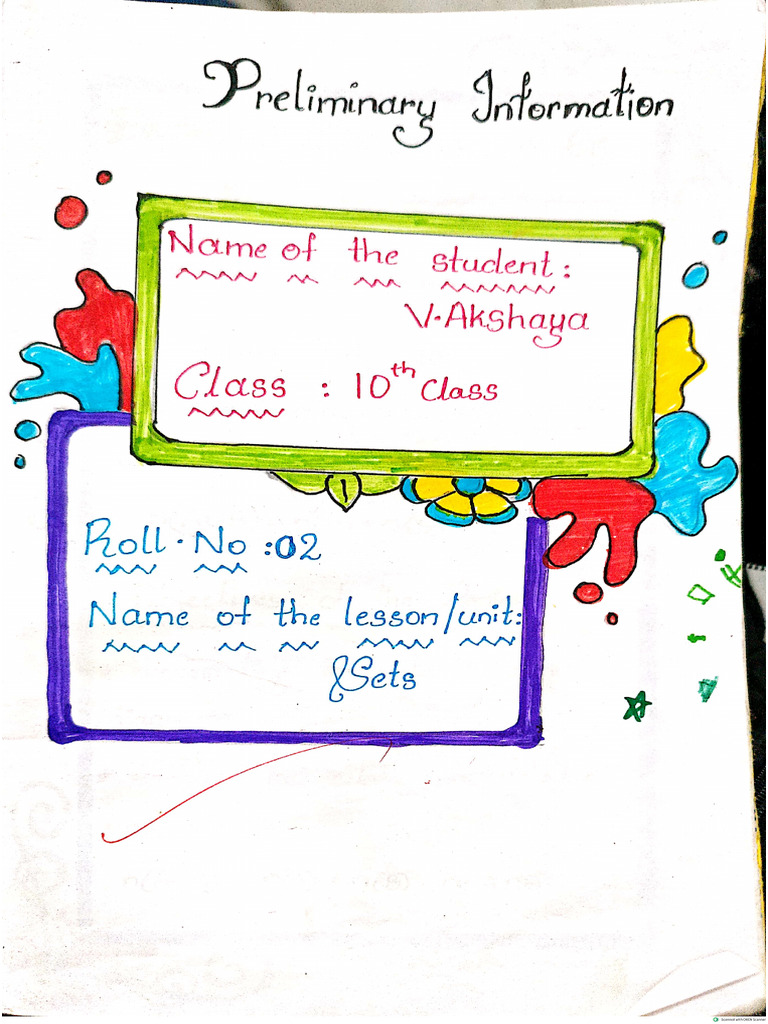 Preliminary Information
Name of the student:
V.Akshaya
Class : 10th Class
Roll.No :02
Name of the lesson/unit:
Sets
Scanned with OKEN Scanner